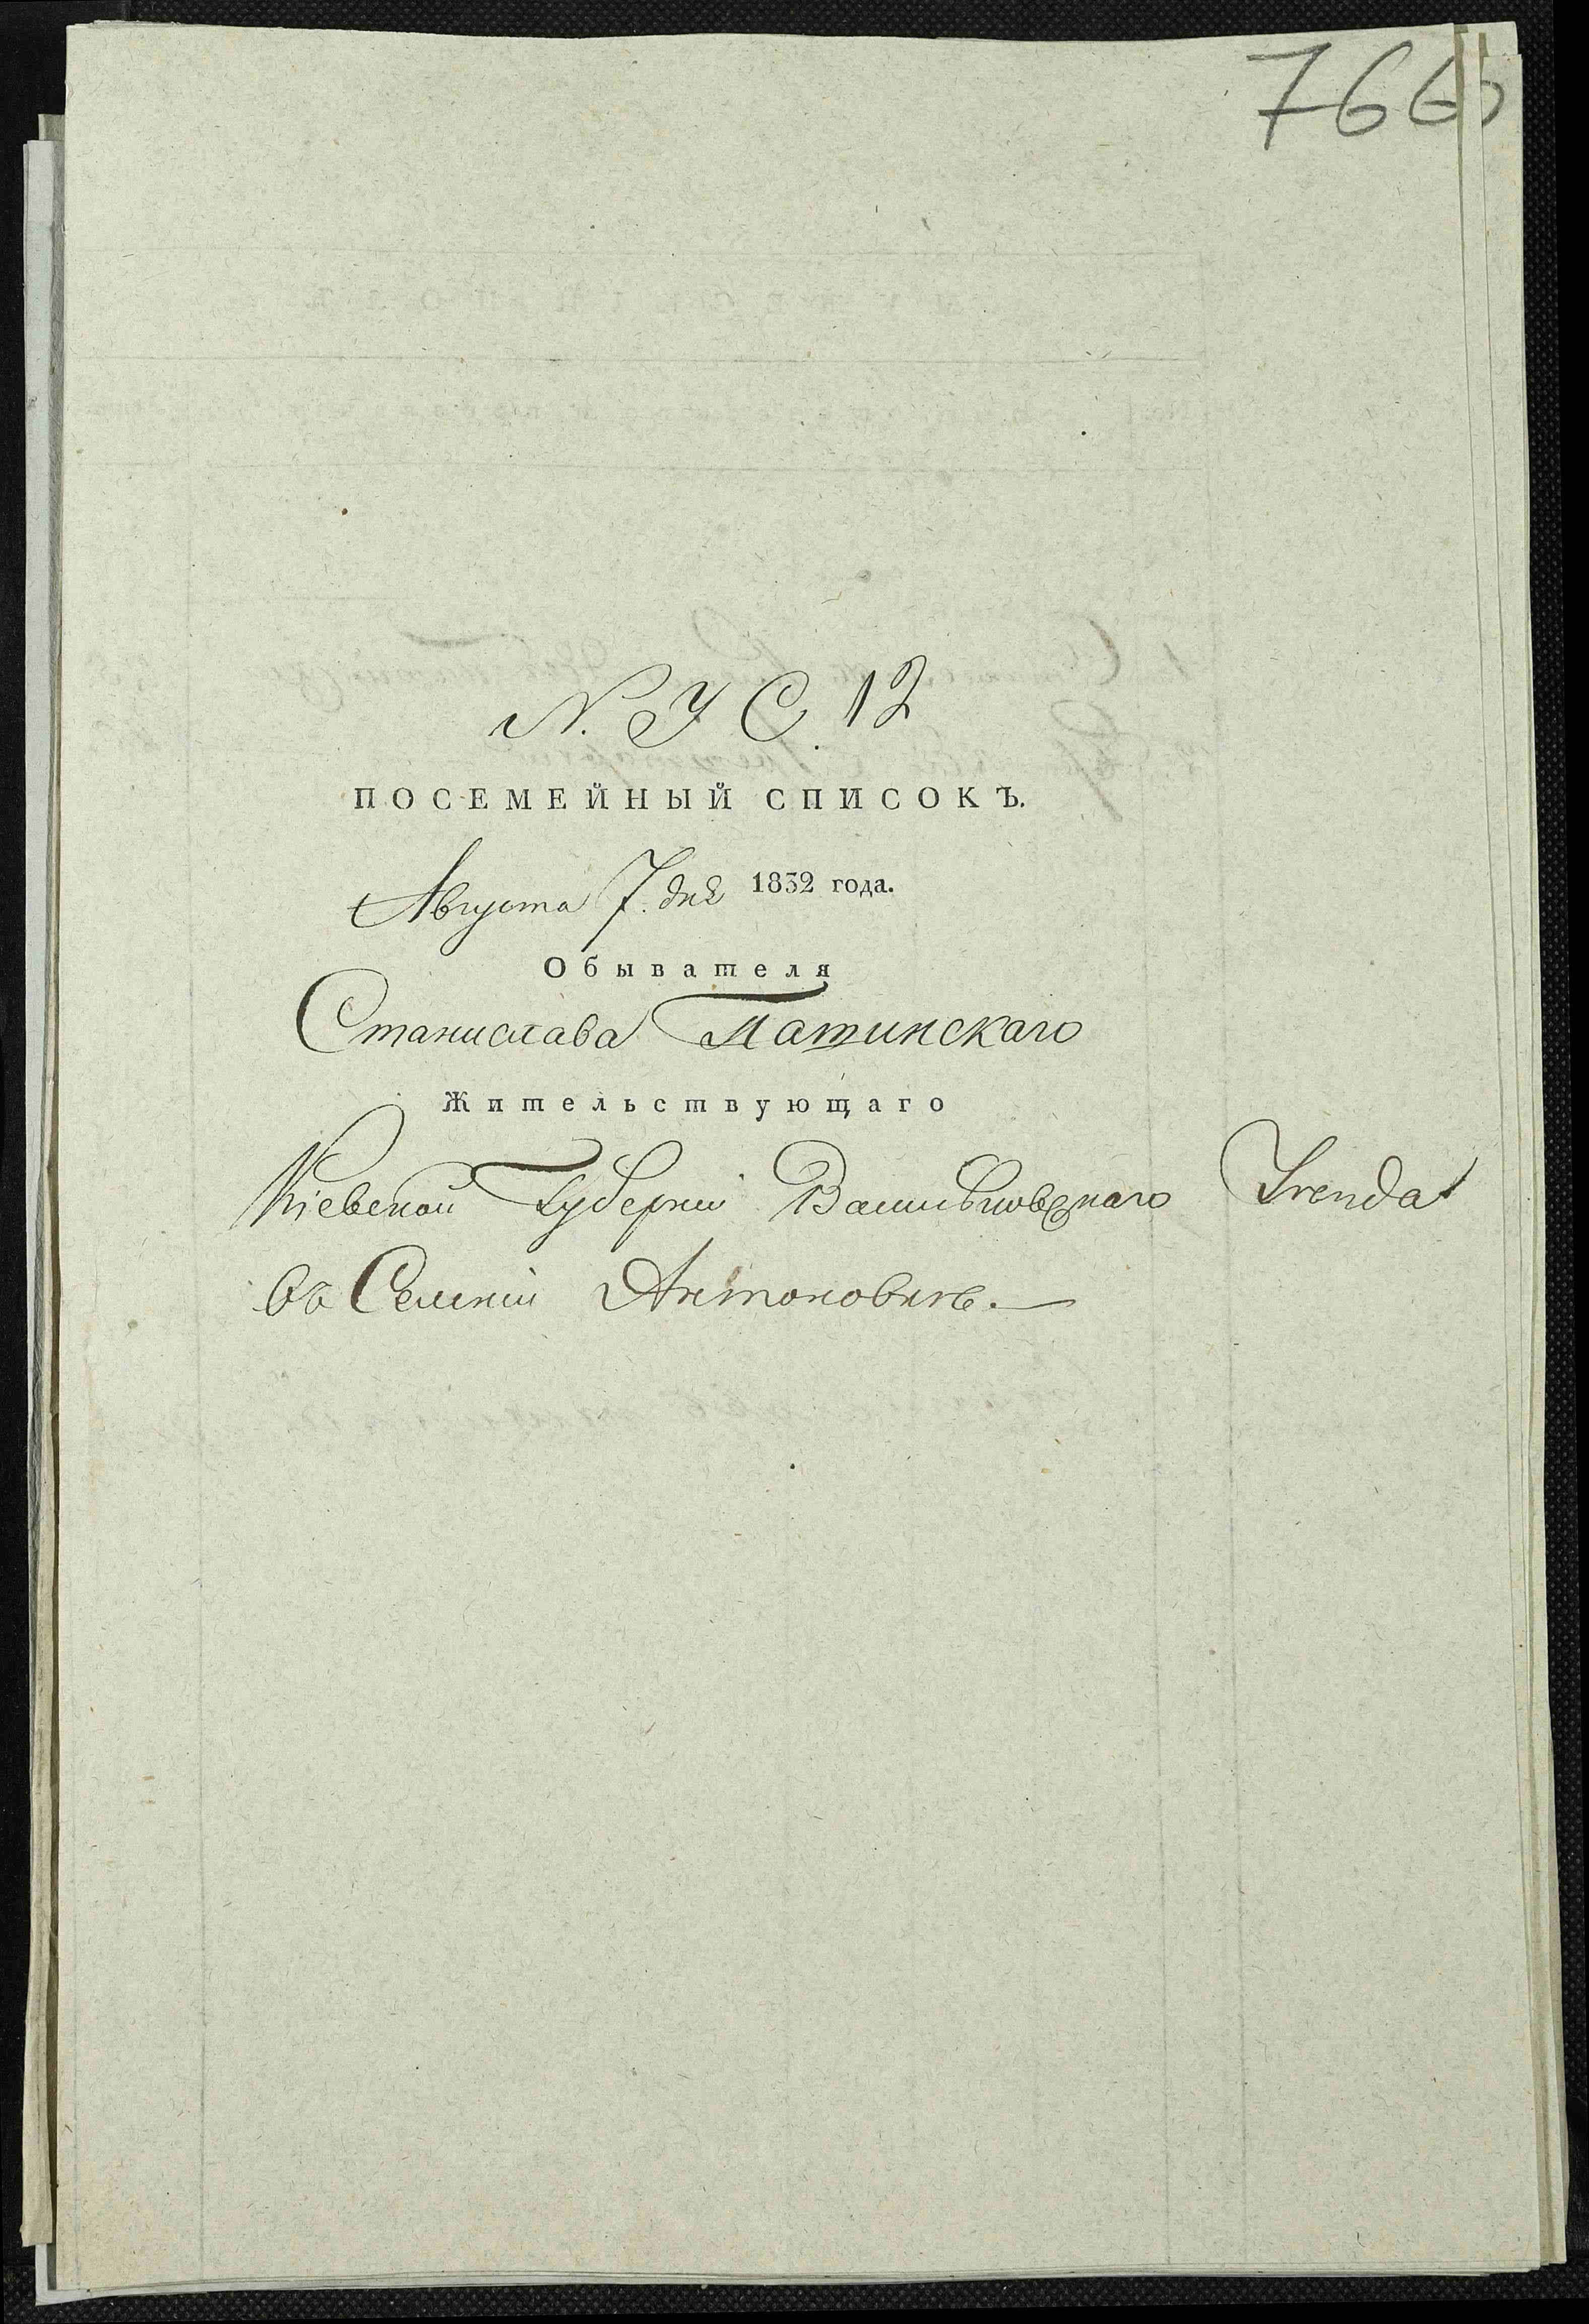 766
N. У С. 12
ПОСЕМЕЙНЫЙ СПИСОКЪ.
Августа 7. дня 1832 года.
Обывателя
Станислава Патинскаго
Жительствующаго
Кіевской Губерніи Васильковскаго
въ Селеніи Антоновки.